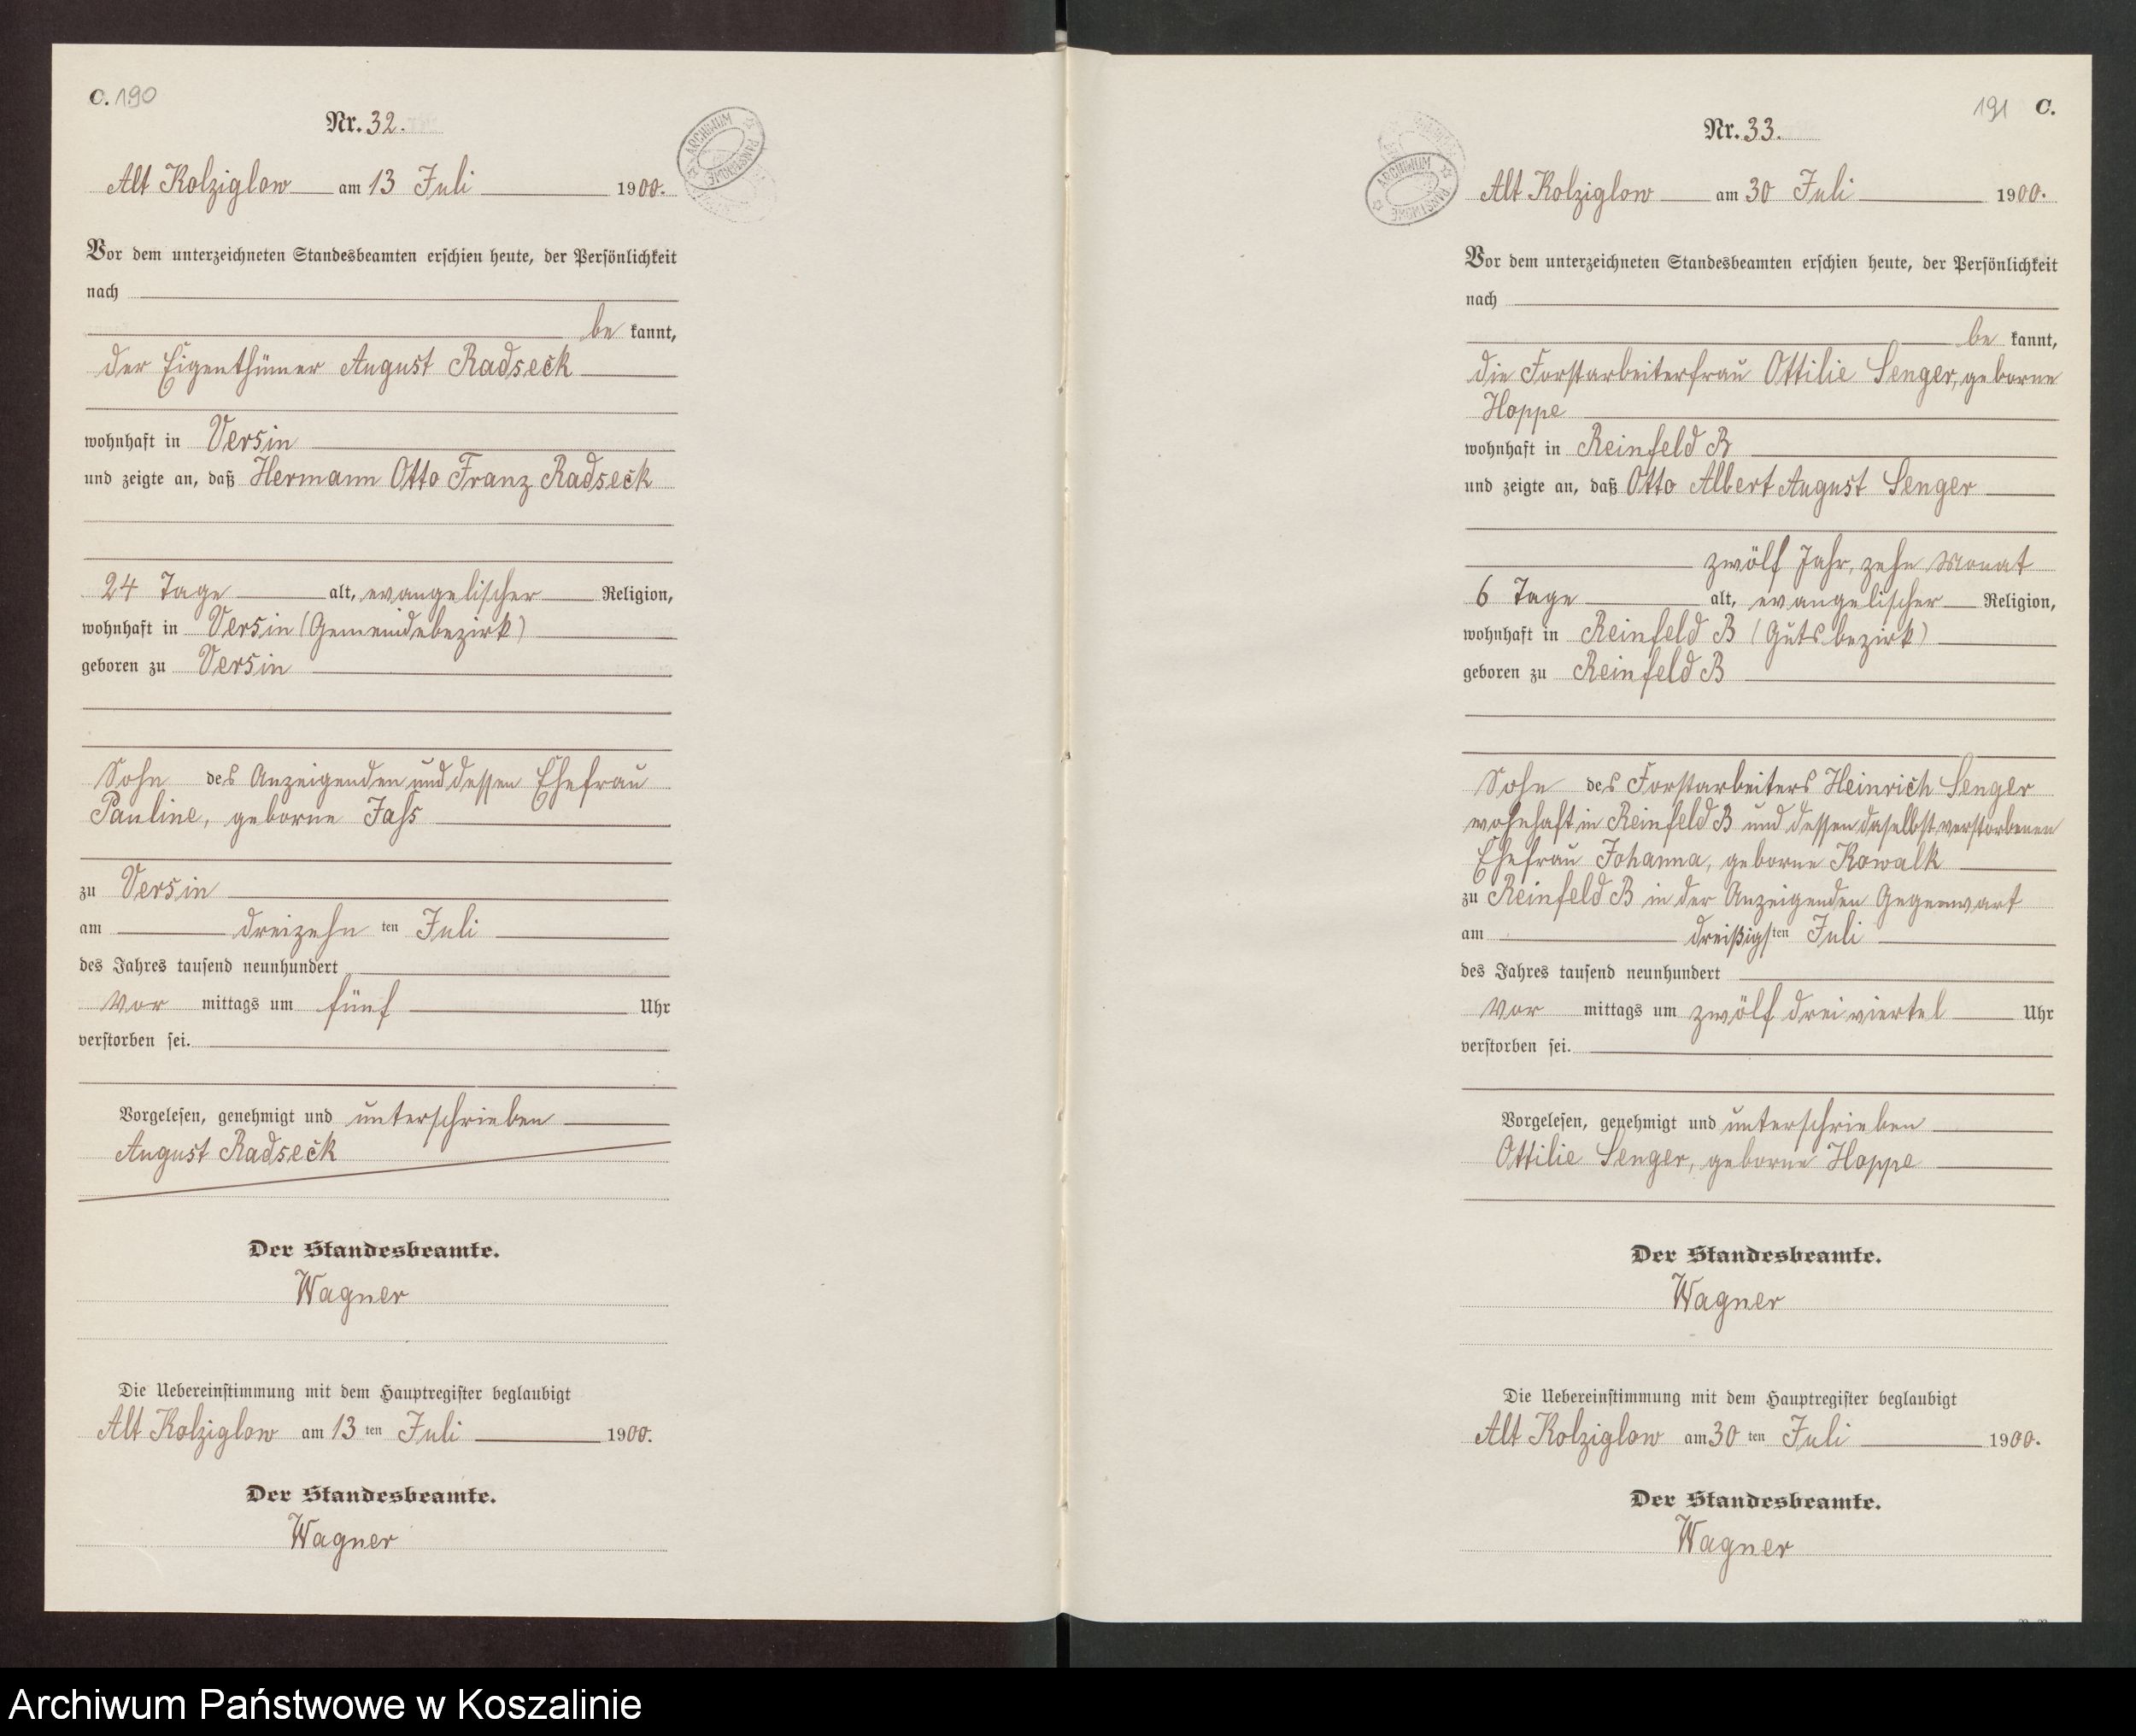 C. 190
Nr. 32.
Alt Kolziglow am 13 Juli 1900.
Vor dem unterzeichneten Standesbeamten erschien heute, der Persönlichkeit
nach
be kannt,
der Eigenthümer August Radseck
wohnhaft in Versin
und zeigte an, daß Hermann Otto Franz Radseck
24 Tage alt, evangelischer Religion,
wohnhaft in Versin (Gemeindebezirk)
geboren zu Versin
Sohn des Anzeigenden und dessen Ehefrau
Pauline, geborne Jass
zu Versin
am dreizehn ten Juli
des Jahres tausend neunhundert
Vor mittags um fünf Uhr
verstorben sei.
Vorgelesen, genehmigt und unterschrieben
August Radseck
Der Standesbeamte.
Wagner
Die Uebereinstimmung mit dem Hauptregister beglaubigt
Alt Kolziglow am 13 ten Juli 1900.
Der Standesbeamte.
Wagner
ARCHIWUM PAŃSTWOWE
191 C.
Nr. 33.
ARCHIWUM PAŃSTWOWE
Alt Kolziglow am 30 Juli 1900.
Vor dem unterzeichneten Standesbeamten erschien heute, der Persönlichkeit
nach
be kannt,
die Forstarbeiterfrau Ottilie Senger, geborne
Hoppe
wohnhaft in Reinfeld B
und zeigte an, daß Otto Albert August Senger
zwölf Jahr, zehn Monat
6 Tage alt, evangelischer Religion,
wohnhaft in Reinfeld B (Gutsbezirk)
geboren zu Reinfeld B
Sohn des Forstarbeiters Heinrich Senger
wohnhaft in Reinfeld B und dessen daselbst verstorbenen
Ehefrau Johanna, geborne Kowalk
zu Reinfeld B in der Anzeigenden Gegenwart
am dreißigsten Juli
des Jahres tausend neunhundert
Vor mittags um zwölf dreiviertel Uhr
verstorben sei.
Vorgelesen, genehmigt und unterschrieben
Ottilie Senger, geborne Hoppe
Der Standesbeamte.
Wagner
Die Uebereinstimmung mit dem Hauptregister beglaubigt
Alt Kolziglow am 30 ten Juli 1900.
Der Standesbeamte.
Wagner
Archiwum Państwowe w Koszalinie